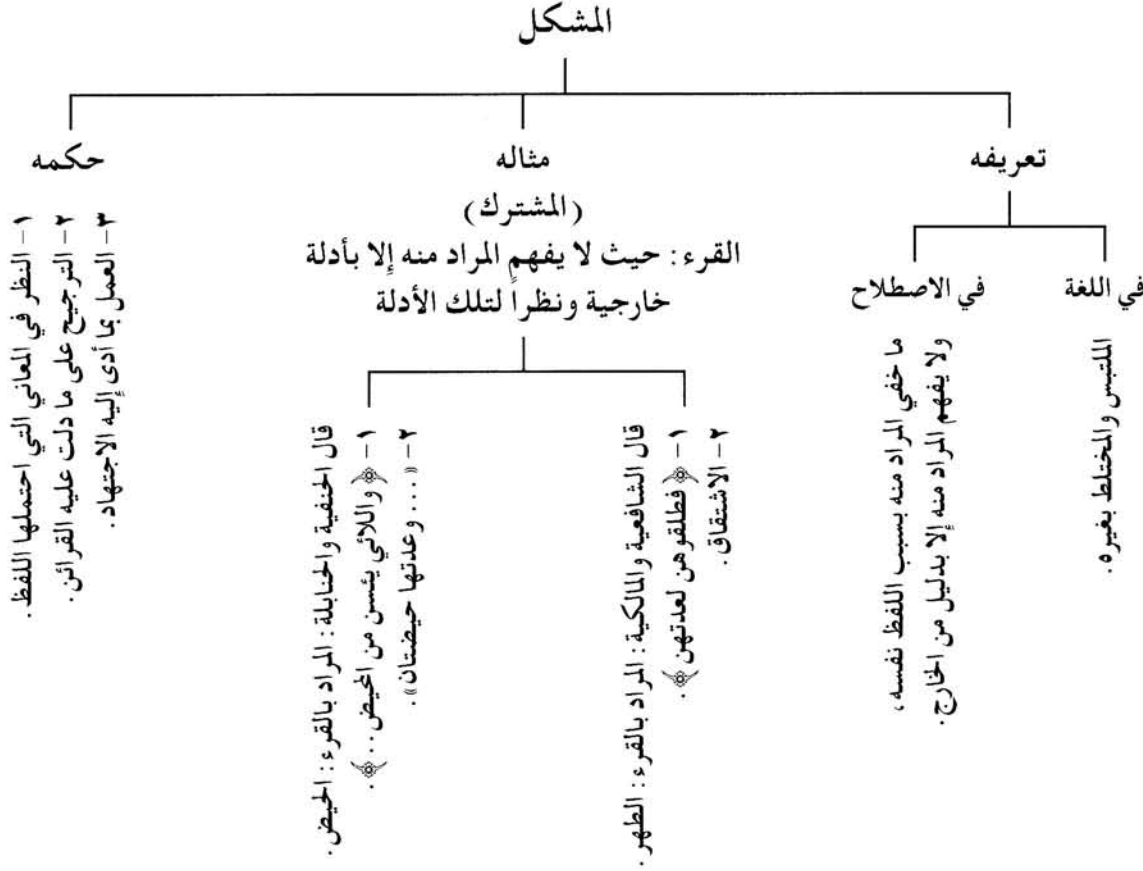 المشكل
تعريفه
في اللغة
الملتبس والمختلط بغيره.
في الاصطلاح
ما خفي المراد منه بسبب اللفظ نفسه،
ولا يفهم المراد منه إلا بدليل من الخارج.
مثاله
(المشترك)
القرء: حيث لا يفهم المراد منه إلا بأدلة
خارجية ونظراً لتلك الأدلة
قال الشافعية والمالكية: المراد بالقرء: الطهر.
١- ﴿فطلقوهن لعدتهن﴾.
٢- الاشتقاق.
قال الحنفية والحنابلة: المراد بالقرء: الحيض.
١- ﴿واللائي يئسن من المحيض..﴾.
٢- «... وعدتها حيضتان».
حكمه
١- النظر في المعاني التي احتملها اللفظ.
٢- الترجيح على ما دلت عليه القرائن.
٣- العمل بما أدى إليه الاجتهاد.